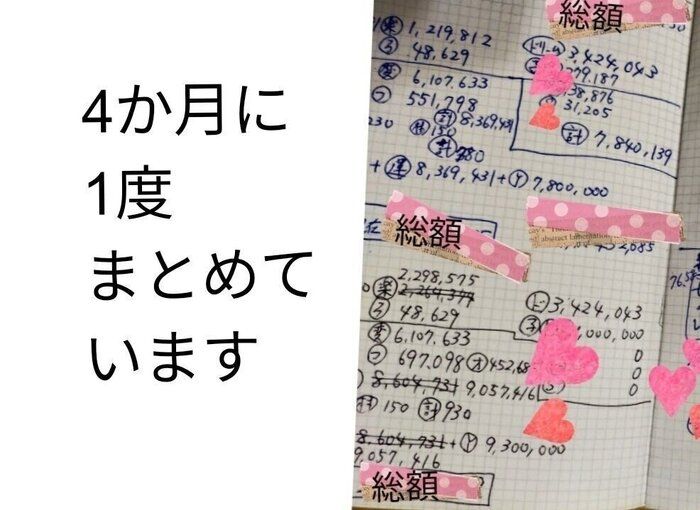 4か月に
1度
まとめて
います
総額
楽 1,219,812
48,629
変 6,107,633
フ 551,798
230
計 8,369,431
150
計
3,424,043
279.187
38,876
31,205
計 7,840,139
+ 8,369,431+ 7,800,000
総額
2,298,575
楽 2,264,399
48,629
変 6,107.633
フ 697.098 オ 452,68
8,604,731 9,057,416
150 計 930
8,604,731+ 9,300,000
9,057,416
3,424,043
,000,000
0
0
0
総額